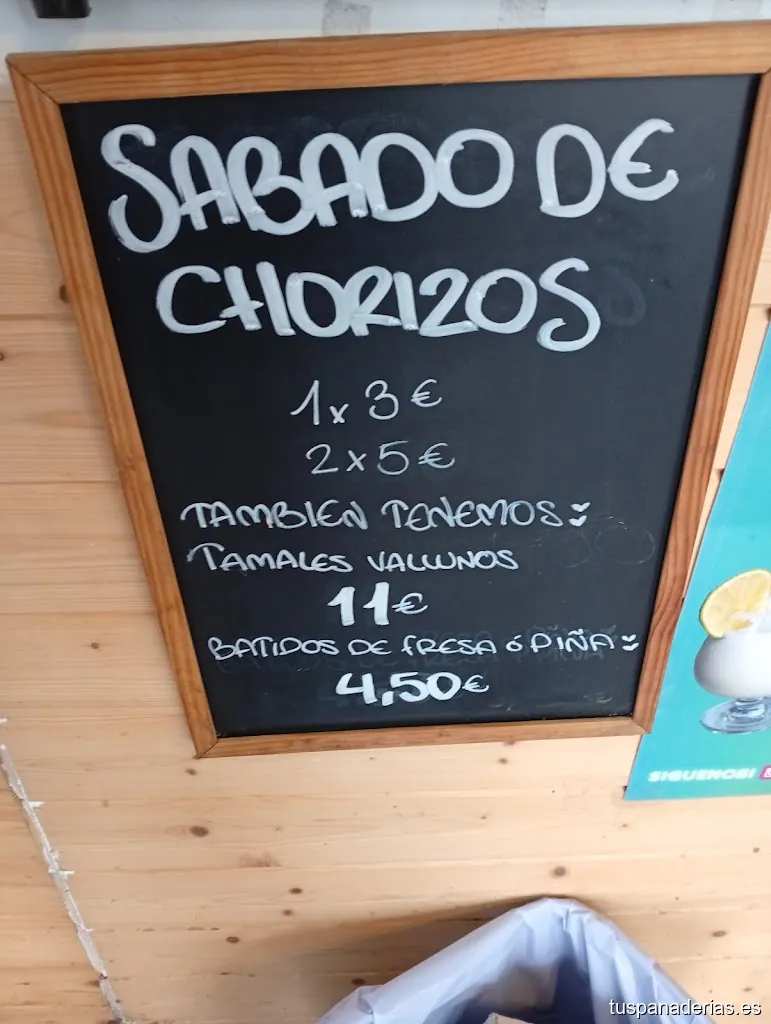 SABADO DE
CHORIZOS
1 x 3 €
2 x 5 €
TAMBIEN TENEMOS
TAMALES VALLUNOS
11€
BATIDOS DE FRESA ó PIÑA
4,50€
SIGUENOS!
tuspanaderias.es